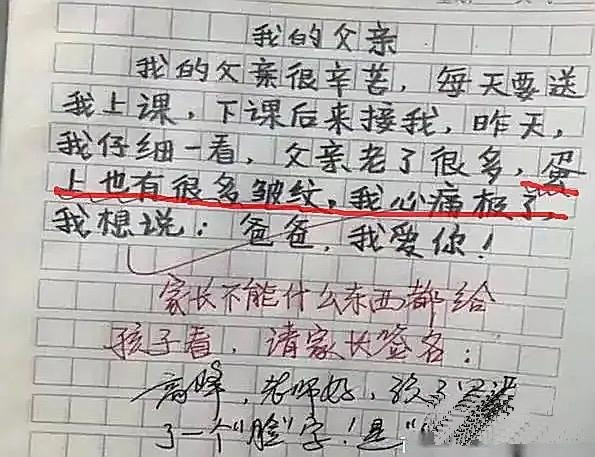 我的父亲
我的父亲很辛苦，每天要送
我上课，下课后来接我，昨天，
我仔细一看，父亲老了很多，蛋
上也有很多皱纹，我心痛极了，
我想说：爸爸，我爱你！
家长不能什么东西都给
孩子看，请家长签名：
高峰，老师好，孩子
了一个“脸”字！是“